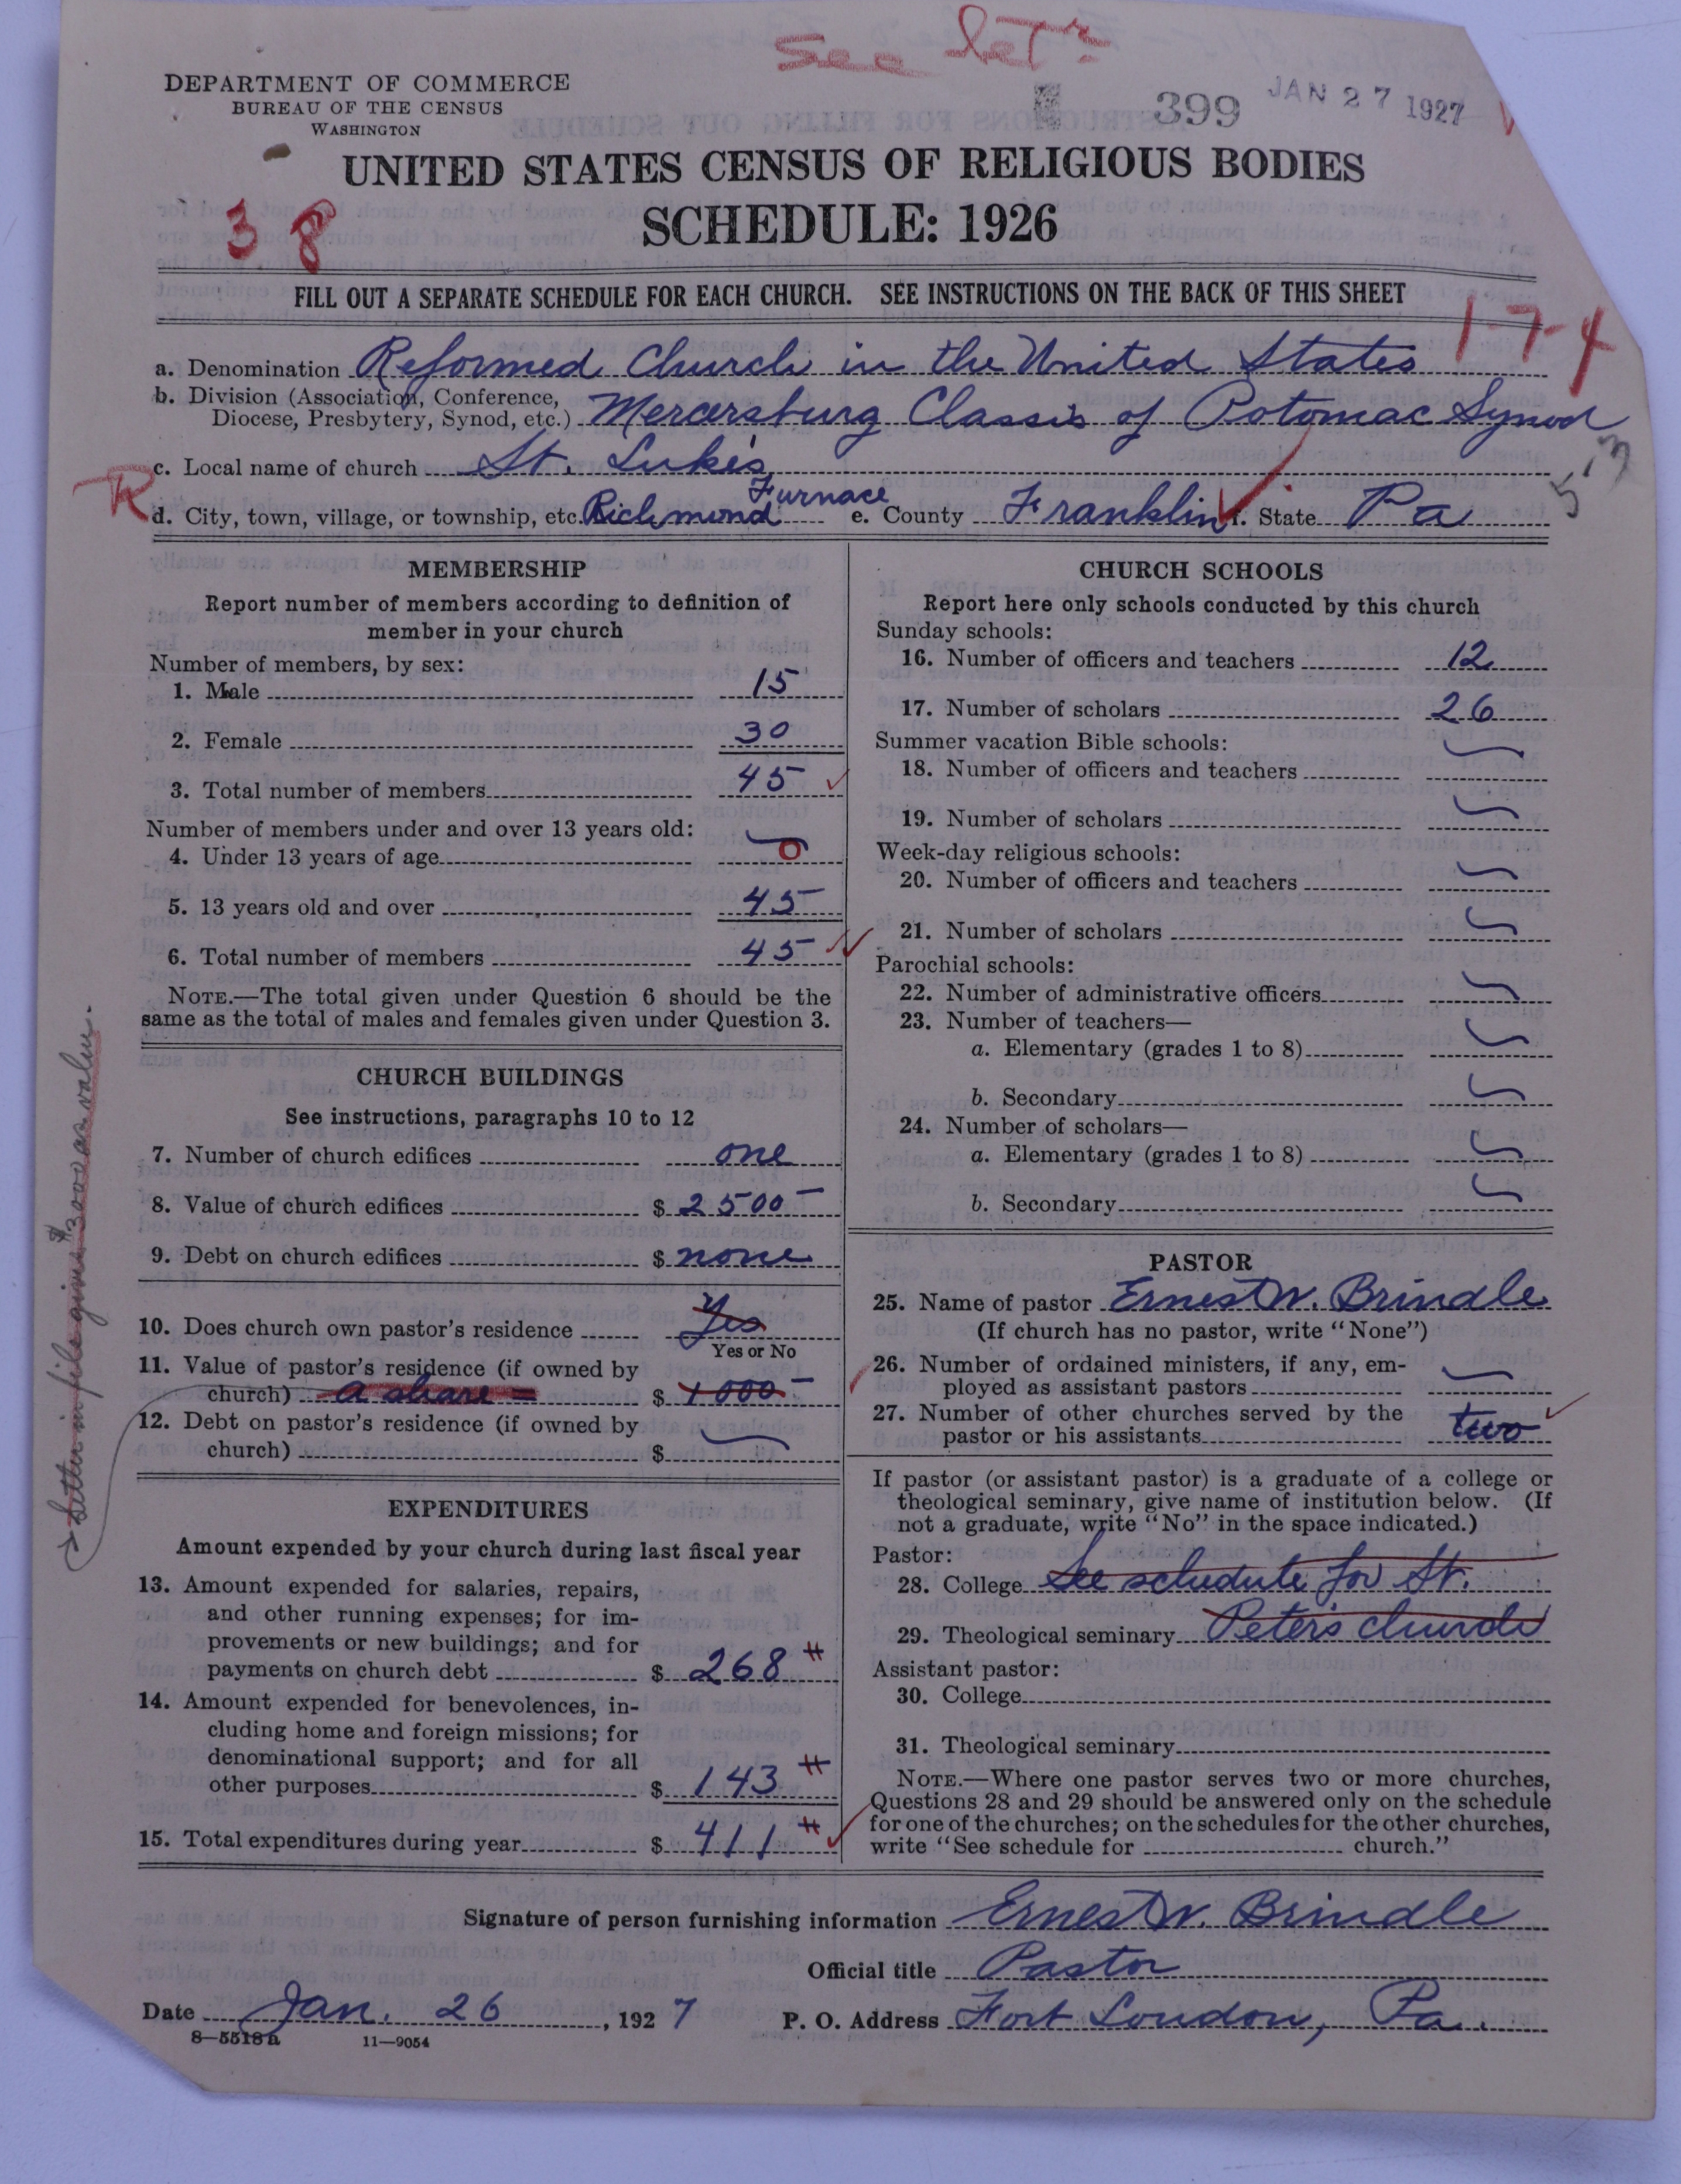 See let'r
DEPARTMENT OF COMMERCE
BUREAU OF THE CENSUS
WASHINGTON
399 JAN 27 1927
UNITED STATES CENSUS OF RELIGIOUS BODIES
SCHEDULE: 1926
38
FILL OUT A SEPARATE SCHEDULE FOR EACH CHURCH. SEE INSTRUCTIONS ON THE BACK OF THIS SHEET
1-7-4
a. Denomination Reformed Church in the United States
b. Division (Association, Conference,
Diocese, Presbytery, Synod, etc.) Mercersburg Classis of Potomac Synod
c. Local name of church St. Luke's
R d. City, town, village, or township, etc. Richmond Furnace e. County Franklin f. State Pa
MEMBERSHIP
Report number of members according to definition of
member in your church
Number of members, by sex:
1. Male 15
2. Female 30
3. Total number of members 45
Number of members under and over 13 years old:
4. Under 13 years of age 0
5. 13 years old and over 45
6. Total number of members 45
NOTE.—The total given under Question 6 should be the
same as the total of males and females given under Question 3.
CHURCH BUILDINGS
See instructions, paragraphs 10 to 12
7. Number of church edifices one
8. Value of church edifices $ 2500 —
9. Debt on church edifices $ none
10. Does church own pastor's residence Yes
Yes or No
11. Value of pastor's residence (if owned by
church) a share = $ 1000 —
12. Debt on pastor's residence (if owned by
church) $
Letter in file gives $3000 as value.
EXPENDITURES
Amount expended by your church during last fiscal year
13. Amount expended for salaries, repairs,
and other running expenses; for im-
provements or new buildings; and for
payments on church debt $ 268
14. Amount expended for benevolences, in-
cluding home and foreign missions; for
denominational support; and for all
other purposes $ 143
15. Total expenditures during year $ 411
CHURCH SCHOOLS
Report here only schools conducted by this church
Sunday schools:
16. Number of officers and teachers 12
17. Number of scholars 26
Summer vacation Bible schools:
18. Number of officers and teachers
19. Number of scholars
Week-day religious schools:
20. Number of officers and teachers
21. Number of scholars
Parochial schools:
22. Number of administrative officers
23. Number of teachers—
a. Elementary (grades 1 to 8)
b. Secondary
24. Number of scholars—
a. Elementary (grades 1 to 8)
b. Secondary
PASTOR
25. Name of pastor Ernest W. Brindle
(If church has no pastor, write "None")
26. Number of ordained ministers, if any, em-
ployed as assistant pastors
27. Number of other churches served by the
pastor or his assistants two
If pastor (or assistant pastor) is a graduate of a college or
theological seminary, give name of institution below. (If
not a graduate, write "No" in the space indicated.)
Pastor:
28. College See schedule for St.
29. Theological seminary Peter's church
Assistant pastor:
30. College
31. Theological seminary
NOTE.—Where one pastor serves two or more churches,
Questions 28 and 29 should be answered only on the schedule
for one of the churches; on the schedules for the other churches,
write "See schedule for church."
Signature of person furnishing information Ernest W. Brindle
Official title Pastor
Date Jan. 26, 1927 P. O. Address Fort Loudon, Pa.
8—5518a 11—9054